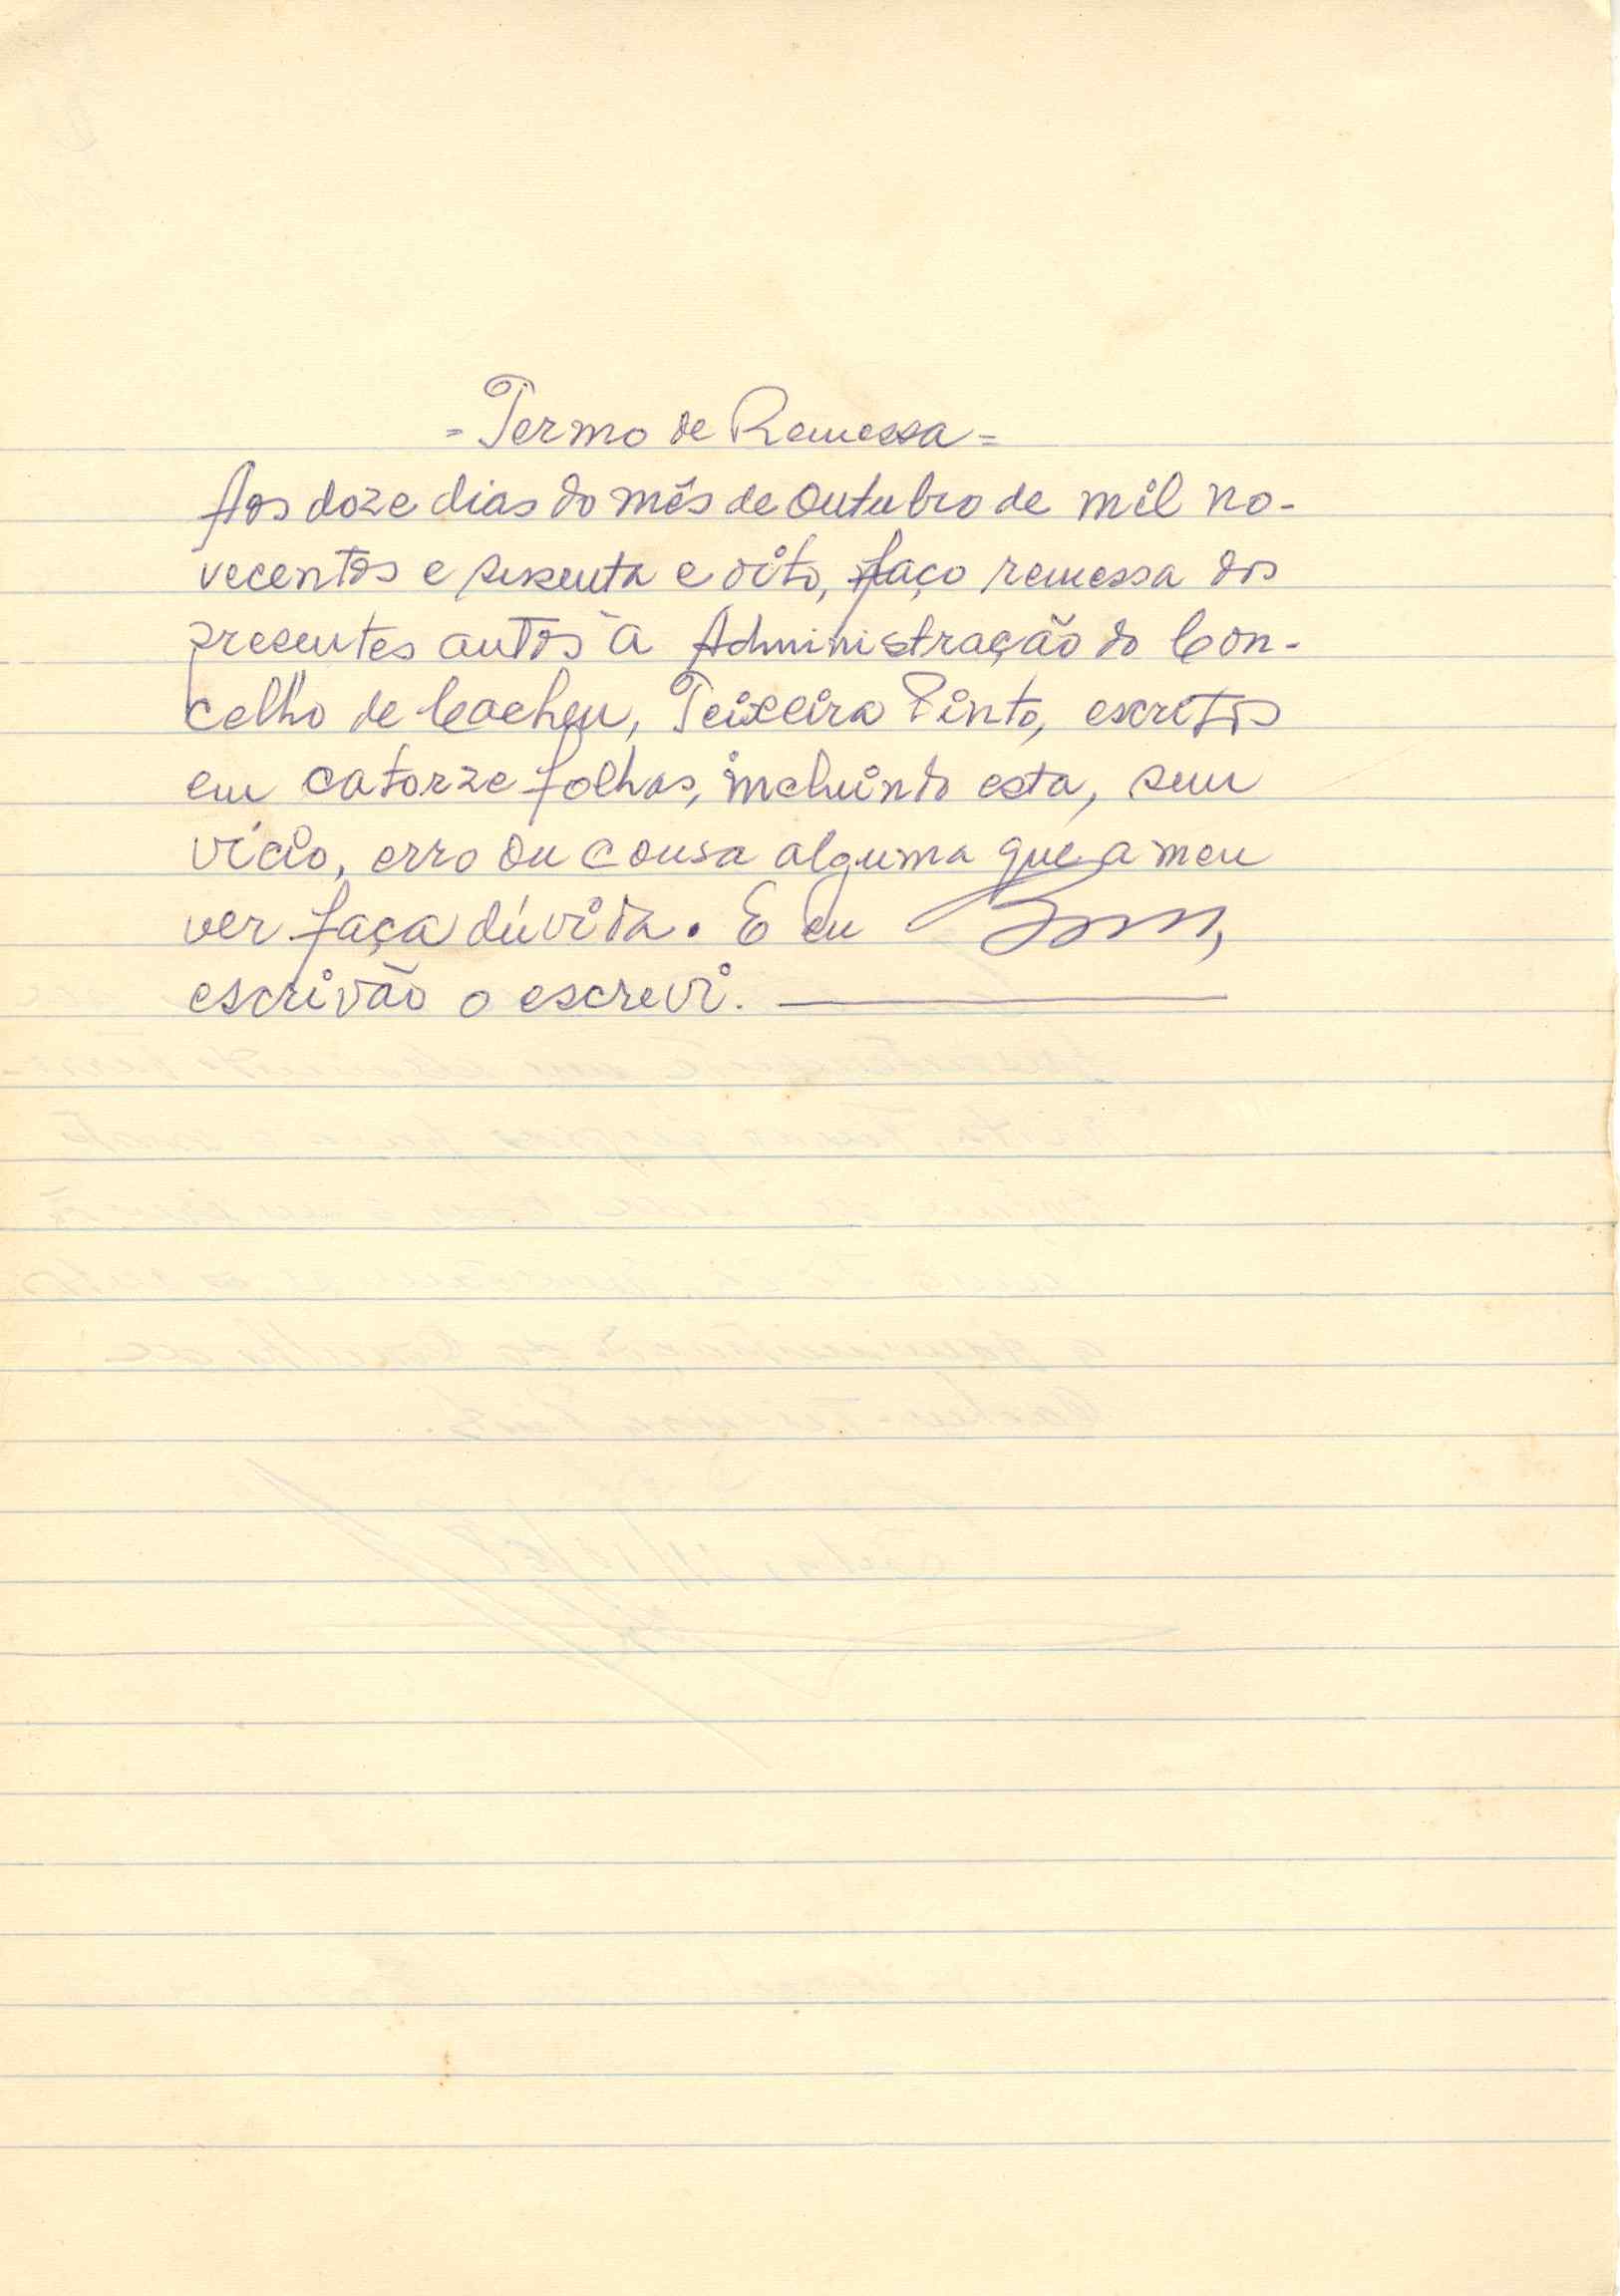 = Termo de Remessa =
Aos doze dias do mês de Outubro de mil no-
vecentos e sessenta e oito, faço remessa dos
presentes autos à Administração do Con-
celho de Cacheu, Teixeira Pinto, escritos
em catorze folhas, incluindo esta, sem
vício, erro ou cousa alguma que a meu
ver faça dúvida. E eu
escrivão o escrevi.